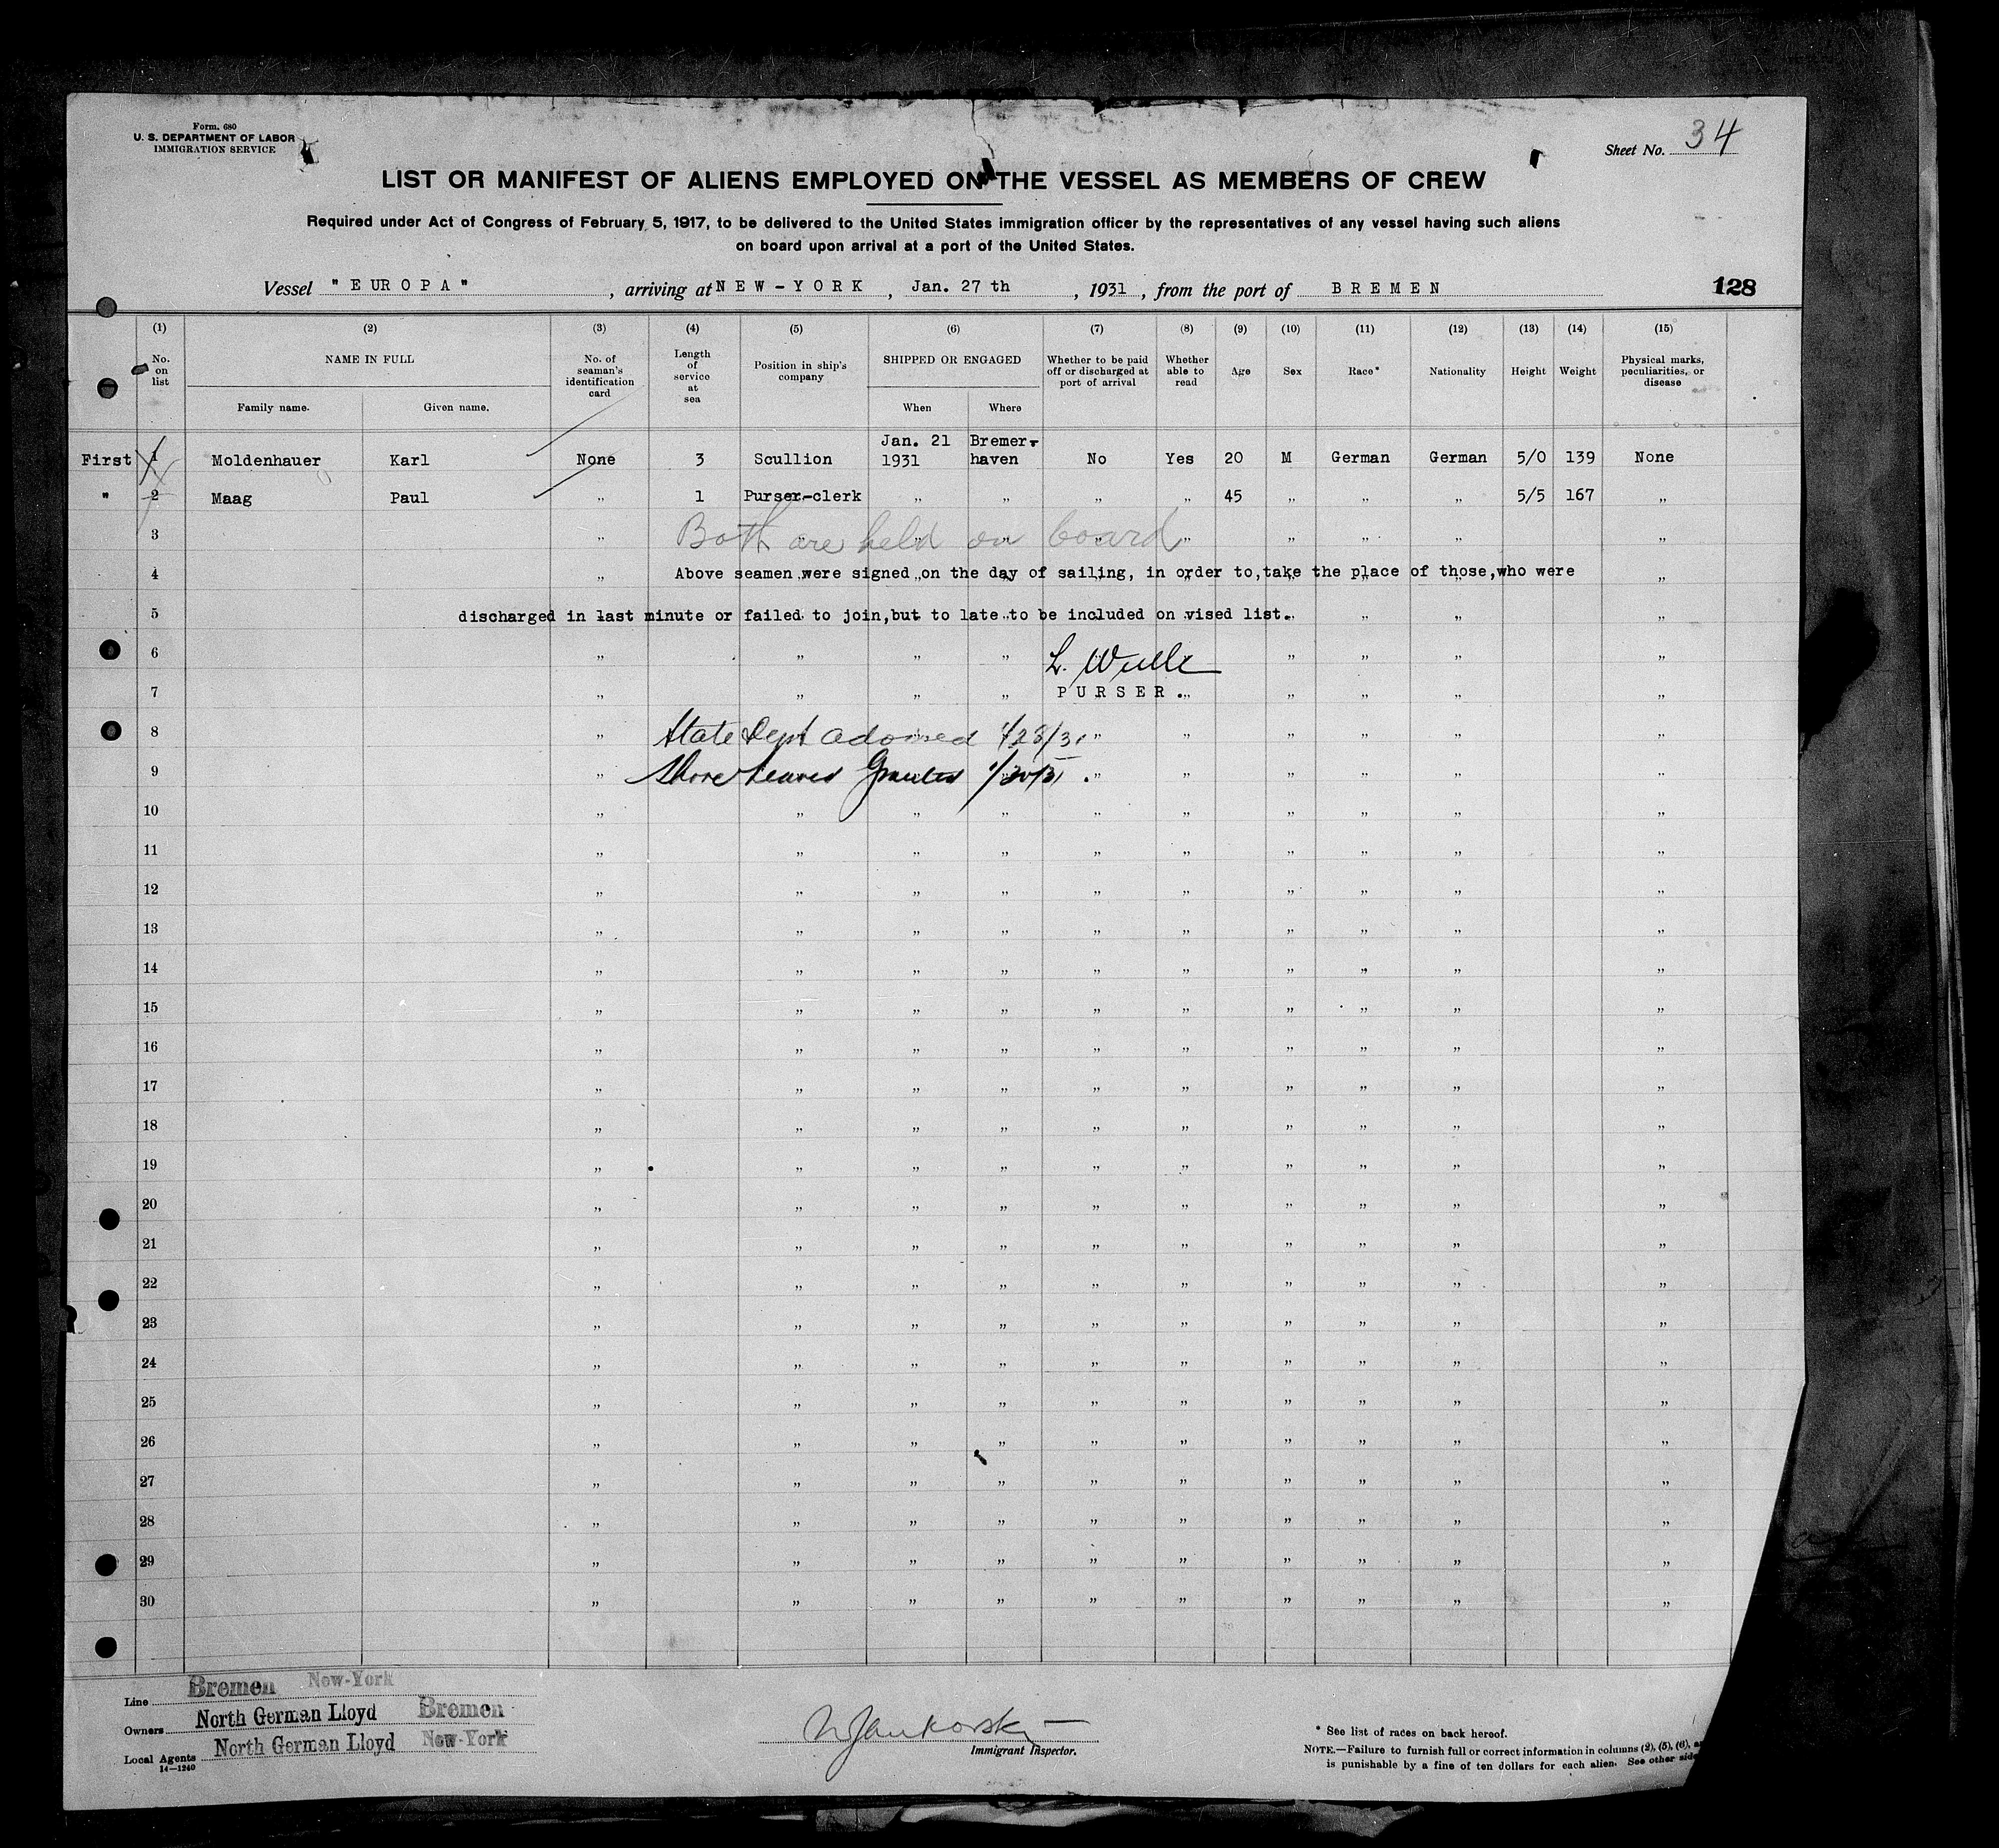 Form. 680
U. S. DEPARTMENT OF LABOR
IMMIGRATION SERVICE
Sheet No. 34
LIST OR MANIFEST OF ALIENS EMPLOYED ON THE VESSEL AS MEMBERS OF CREW
Required under Act of Congress of February 5, 1917, to be delivered to the United States immigration officer by the representatives of any vessel having such aliens
on board upon arrival at a port of the United States.
Vessel "EUROPA", arriving at NEW-YORK, Jan. 27 th, 1931, from the port of BREMEN
128
(1) (2) (3) (4) (5) (6) (7) (8) (9) (10) (11) (12) (13) (14) (15)
No. on list NAME IN FULL No. of seaman's identification card Length of service at sea Position in ship's company SHIPPED OR ENGAGED Whether to be paid off or discharged at port of arrival Whether able to read Age Sex Race* Nationality Height Weight Physical marks, peculiarities, or disease
Family name. Given name. When Where
First 1 Moldenhauer Karl None 3 Scullion Jan. 21 1931 Bremer-haven No Yes 20 M German German 5/0 139 None
" 2 Maag Paul " 1 Purser-clerk " " " " 45 " " " 5/5 167 "
3 " Both are held on board " " " "
4 " Above seamen were signed on the day of sailing, in order to, take the place of those, who were "
5 discharged in last minute or failed to join, but to late to be included on vised list. " " "
6 " " " " L. Wulle " " " "
7 " " " " PURSER. " " " " "
8 " State Dept advised 1/28/31 " " " " " "
9 " Shore Leaves Granted 1/30/31 . " " " " " "
10 " " " " " " " " " "
11 " " " " " " " " " "
12 " " " " " " " " " "
13 " " " " " " " " " "
14 " " " " " " " " " "
15 " " " " " " " " " "
16 " " " " " " " " " "
17 " " " " " " " " " "
18 " " " " " " " " " "
19 " " " " " " " " " "
20 " " " " " " " " " "
21 " " " " " " " " " "
22 " " " " " " " " " "
23 " " " " " " " " " "
24 " " " " " " " " " "
25 " " " " " " " " " "
26 " " " " " " " " " "
27 " " " " " " " " " "
28 " " " " " " " " " "
29 " " " " " " " " " "
30 " " " " " " " " " "
Line Bremen New-York
Owners North German Lloyd Bremen
Local Agents North German Lloyd New-York
14—1240
Immigrant Inspector.
* See list of races on back hereof.
NOTE.—Failure to furnish full or correct information in columns (2), (5), (6),
is punishable by a fine of ten dollars for each alien. See other side